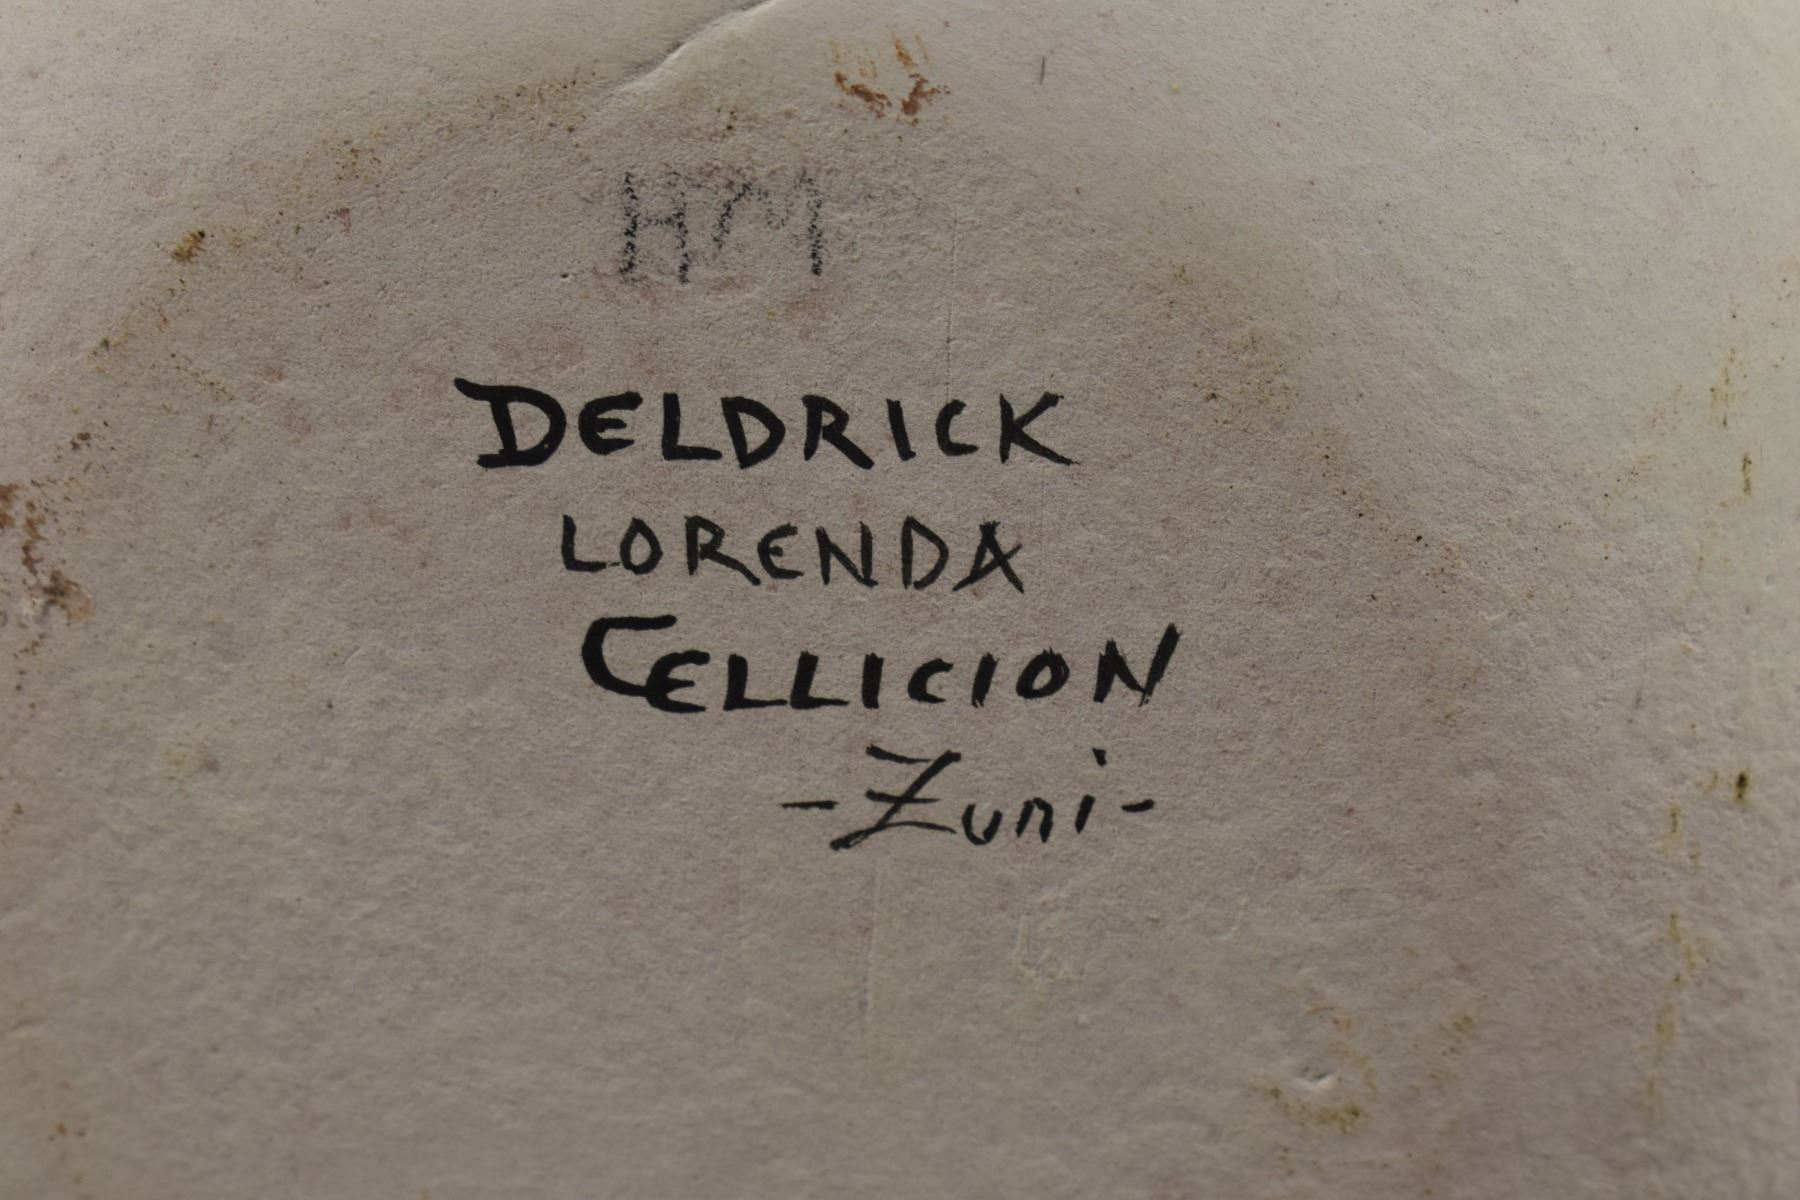 HM
DELDRICK
LORENDA
CELLICION
-Zuni-